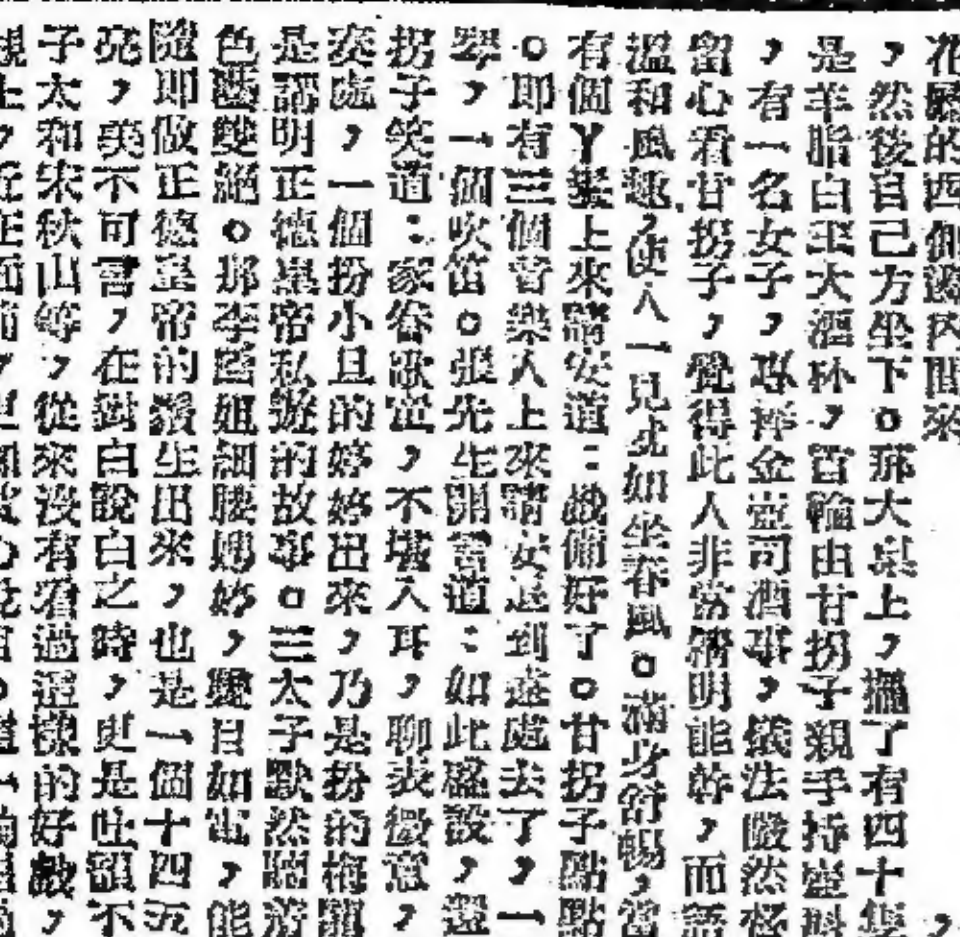 花廳的四側邊內閣來
，然後自己方坐下。那大桌上，擺了有四十隻
是羊脂白玉大酒杯，皆輪由甘拐子親手持壺斟
，有一名女子，專捧金壺司酒事，儀法嚴然
留心看甘拐子，覺得此人非常精明能幹，而語
溫和風趣，使人一見尤如坐春風。滿身舒暢，當
有個丫鬟上來請安道：戲備好了。甘拐子點點
。即有三個音樂人上來請安退到遠處去了，一
琴，一個吹笛。張先生開言道：如此盛設，還
拐子笑道：家眷歌宴，不堪入耳，聊表微意，
奏處，一個扮小旦的婷婷出來，乃是扮的梅龍
是講明正德皇帝私遊的故事。三太子默然
色藝雙絕。那李鳳姐細腰嫋娜，雙目如電，能
隨即做正德皇帝的鬚生出來，也是一個十四五
亮，美不可言，在對白說白之時，更是吐韻不
子太和宋秋山等，從來沒有看過這樣的好戲，